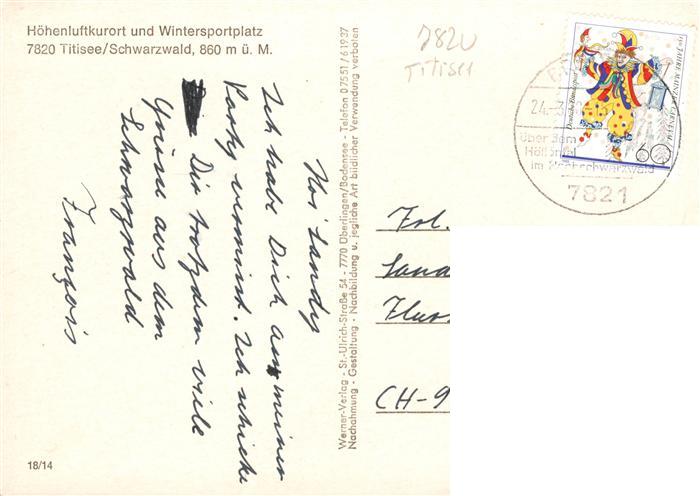 Höhenluftkurort und Wintersportplatz
7820 Titisee/Schwarzwald, 860 m ü. M.
7820
Titisee
Hoi Sandy
Ich habe Dich an meiner
Party vermisst. Ich schicke
Dir trotzdem viele
Grüsse aus dem
Schwarzwald
François
18/14
Werner-Verlag - St.-Ulrich-Straße 54 - 7770 Überlingen/Bodensee - Telefon 07551/61937
Nachahmung - Gestaltung - Nachbildung u. jegliche Art bildlicher Verwendung verboten
Deutsche Bundespost
150 JAHRE MAINZER CARNEVAL
60
24.-3.
über dem
im Hochschwarzwald
7821
Frl.
Sand
CH-9